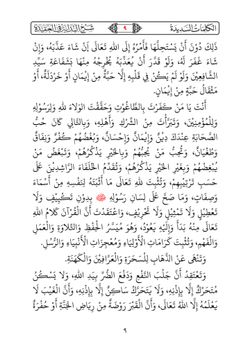 الكلمات السديدة
٩
شرح البداية في العقيدة
ذَلِكَ دُونَ أَنْ يَسْتَحِلَّهَا فَأَمْرُهُ إِلَى اللَّهِ تَعَالَى إِنْ شَاءَ عَذَّبَهُ، وَإِنْ
شَاءَ غَفَرَ لَهُ، وَلَوْ قَدَرَ أَنْ يُعَذِّبَهُ يُخْرِجُهُ مِنْهَا بِشَفَاعَةِ سَيِّدِ
الشَّافِعِينَ وَلَوْ لَمْ يَكُنْ فِي قَلْبِهِ إِلَّا حَبَّةٌ مِنْ إِيمَانٍ أَوْ خَرْدَلَةٌ، أَوْ
مِثْقَالُ حَبَّةٍ مِنْ إِيمَانٍ.
أَنْتَ يَا مَنْ كَفَرْتَ بِالطَّاغُوتِ وَحَقَّقْتَ الْوَلَاءَ لِلَّهِ وَلِرَسُولِهِ
وَلِلْمُؤْمِنِينَ، وَتَبَرَّأْتَ مِنَ الشِّرْكِ وَأَهْلِهِ، وَبِالتَّالِي كَانَ حُبُّ
الصَّحَابَةِ عِنْدَكَ دِينٌ وَإِيمَانٌ وَإِحْسَانٌ، وَبُغْضُهُمْ كُفْرٌ وَنِفَاقٌ
وَطُغْيَانٌ، وَتُحِبُّ مَنْ يُحِبُّهُمْ وَبِالْخَيْرِ يَذْكُرُهُمْ، وَتُبْغِضُ مَنْ
يُبْغِضُهُمْ وَبِغَيْرِ الْخَيْرِ يَذْكُرُهُمْ، وَتُقَدِّمُ الْخُلَفَاءَ الرَّاشِدِينَ عَلَى
حَسَبِ تَرْتِيبِهِمْ، وَتُثْبِتُ لِلَّهِ تَعَالَى مَا أَثْبَتَهُ لِنَفْسِهِ مِنْ أَسْمَاءَ
وَصِفَاتٍ، وَمَا صَحَّ عَلَى لِسَانِ رَسُولِهِ ﷺ بِدُونِ تَكْيِيفٍ وَلَا
تَعْطِيلٍ وَلَا تَمْثِيلٍ وَلَا تَحْرِيفٍ، وَاعْتَقَدْتَ أَنَّ الْقُرْآنَ كَلَامُ اللَّهِ
تَعَالَى مِنْهُ بَدَأَ وَإِلَيْهِ يَعُودُ، وَهُوَ مُيَسَّرُ الْحِفْظِ وَالتِّلَاوَةِ وَالْعَمَلِ
وَالْفَهْمِ، وَتُثْبِتُ كَرَامَاتِ الْأَوْلِيَاءِ وَمُعْجِزَاتِ الْأَنْبِيَاءِ وَالرُّسُلِ.
وَتَنْهَى عَنْ الذَّهَابِ لِلسَّحَرَةِ وَالْعَرَّافِينَ وَالْكَهَنَةِ.
وَتَعْتَقِدُ أَنَّ جَلْبَ النَّفْعِ وَدَفْعَ الضُّرِّ بِيَدِ اللَّهِ، وَلَا يَسْكُنُ
مُتَحَرِّكٌ إِلَّا بِإِذْنِهِ، وَلَا يَتَحَرَّكُ سَاكِنٌ إِلَّا بِإِذْنِهِ، وَأَنَّ الْغَيْبَ لَا
يَعْلَمُهُ إِلَّا اللَّهُ تَعَالَى، وَأَنَّ الْقَبْرَ رَوْضَةٌ مِنْ رِيَاضِ الْجَنَّةِ أَوْ حُفْرَةٌ
٩